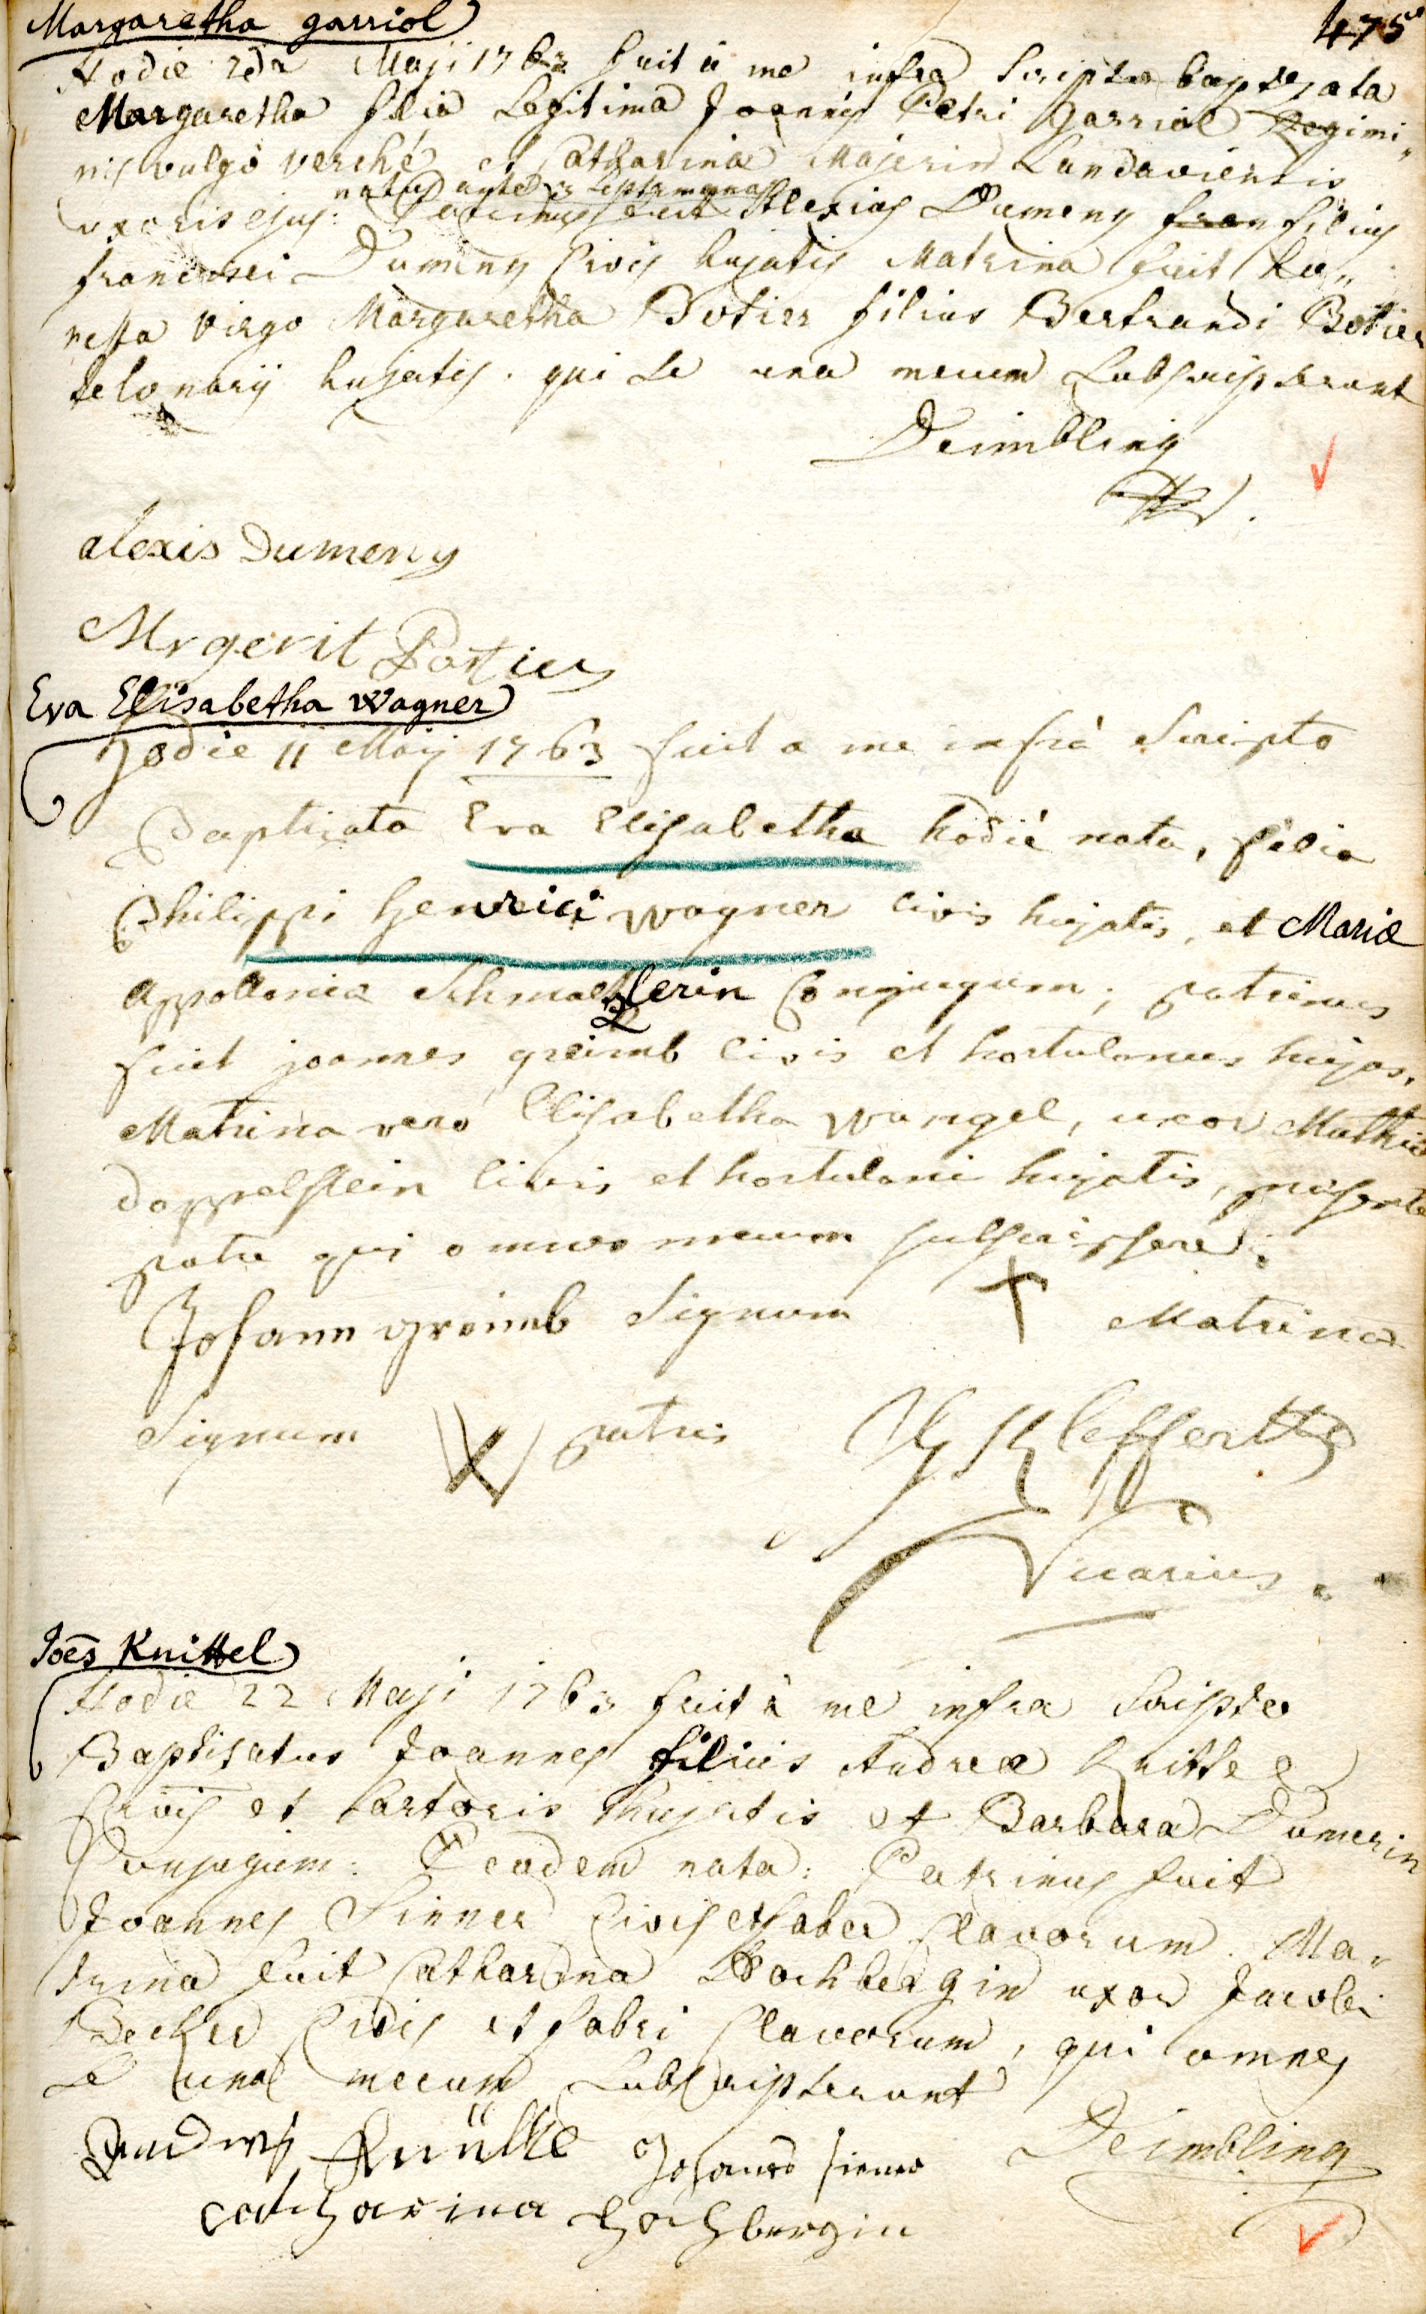 Margaretha garriol
475
Hodie 2da Maji 1763 fuit à me infra scripto baptizata
Margaretha filia Legitima Joannis Petri Garriol Regimi„
nis vulgò verché et Catharina Majerin Landaviensis
natus ante 3 septimanas
uxoris ejus: Patrinus fuit Alexius Dumeny fran filius
francisci Dumeny Civis hujatis Matrina fuit ho„
nesta virgo Margaretha Botier filius Bertrandi Botier
telonarij hujatis. qui se una mecum Subscripserunt
Deimbling
alexis Dumeny
Mrgerit Portier
Eva Elisabetha Wagner
Hodie 11 Maij 1763 fuit a me infrà Scripto
Baptizata Eva Elisabetha hodiè nata, filia
Philippi Henrici Wagner civis hujatis, et Mariæ
Appolloniæ Schmaltzlerin Conjugum; patrinus
fuit joannes greimb civis et hortulanus hujas,
Matrina vero Elisabetha Wangel, uxor Mathiæ
Doppelstein civis et hortulani hujatis, præsente
patre qui omnes mecum subscripsere.
Johann greimb Signum + Matrinæ
Signum patris
Kleffertts
Vicarius.
Joēs Knittel
Hodie 22 Maji 1763 fuit à me infra Scripto
Baptisatus Joannes filius Andreæ Knittel
Civis et Sartoris hujatis et Barbara Dumerin
Conjugum: Eadem nata: Patrinus fuit
Joannes Sinner Civis et faber Clavorum. Ma„
trina fuit Catharina Hochbergin uxor Jacobi
Becker Civis et fabri Clavorum, qui omnes
se una mecum Subscripserunt
Andreas Knüttel Johannes sinner Deimbling
catharina Hochbergin